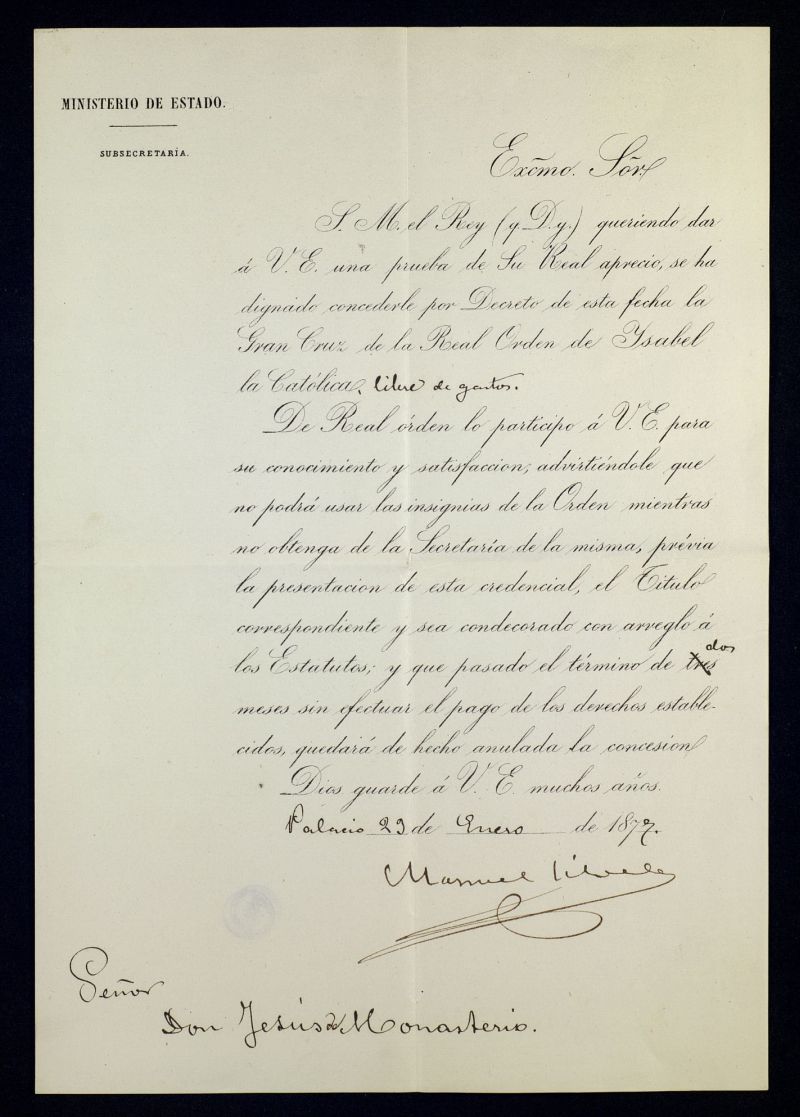 MINISTERIO DE ESTADO.
SUBSECRETARÍA.
Excm̃o. Sõr
S. M. el Rey (q. D. g.) queriendo dar
á V. E. una prueba de Su Real aprecio, se ha
dignado concederle por Decreto de esta fecha la
Gran Cruz de la Real Orden de Isabel
la Católica, libre de gastos.
De Real órden lo participo á V. E. para
su conocimiento y satisfaccion; advirtiéndole que
no podrá usar las insignias de la Orden mientras
no obtenga de la Secretaría de la misma, prévia
la presentacion de esta credencial, el Titulo
correspondiente y sea condecorado con arreglo á
los Estatutos; y que pasado el término de tres dos
meses sin efectuar el pago de los derechos estable-
cidos, quedará de hecho anulada la concesion
Dios guarde á V. E. muchos años.
Palacio 29 de Enero de 1877.
Manuel Silvela
Señor
Don Jesús de Monasterio.